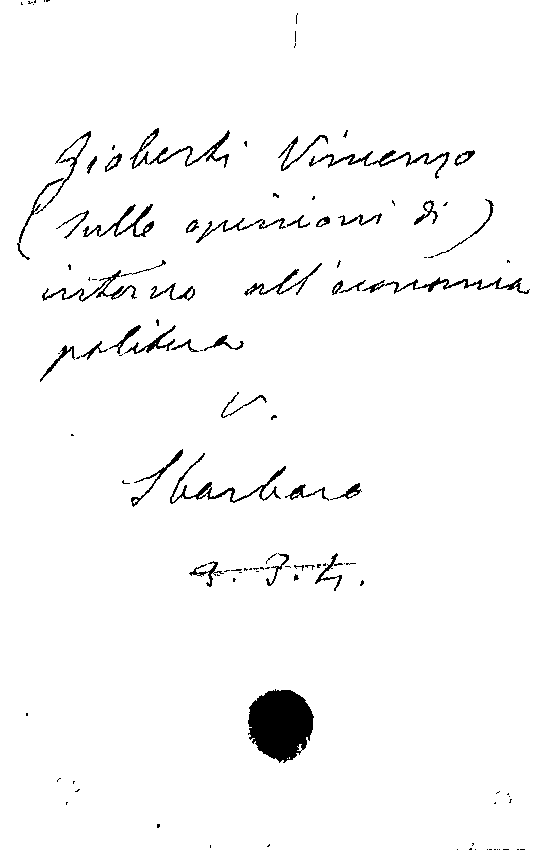 Gioberti Vincenzo
(sulle opinioni di)
intorno all'economia
politica
V.
Sbarbaro
9.3.4.